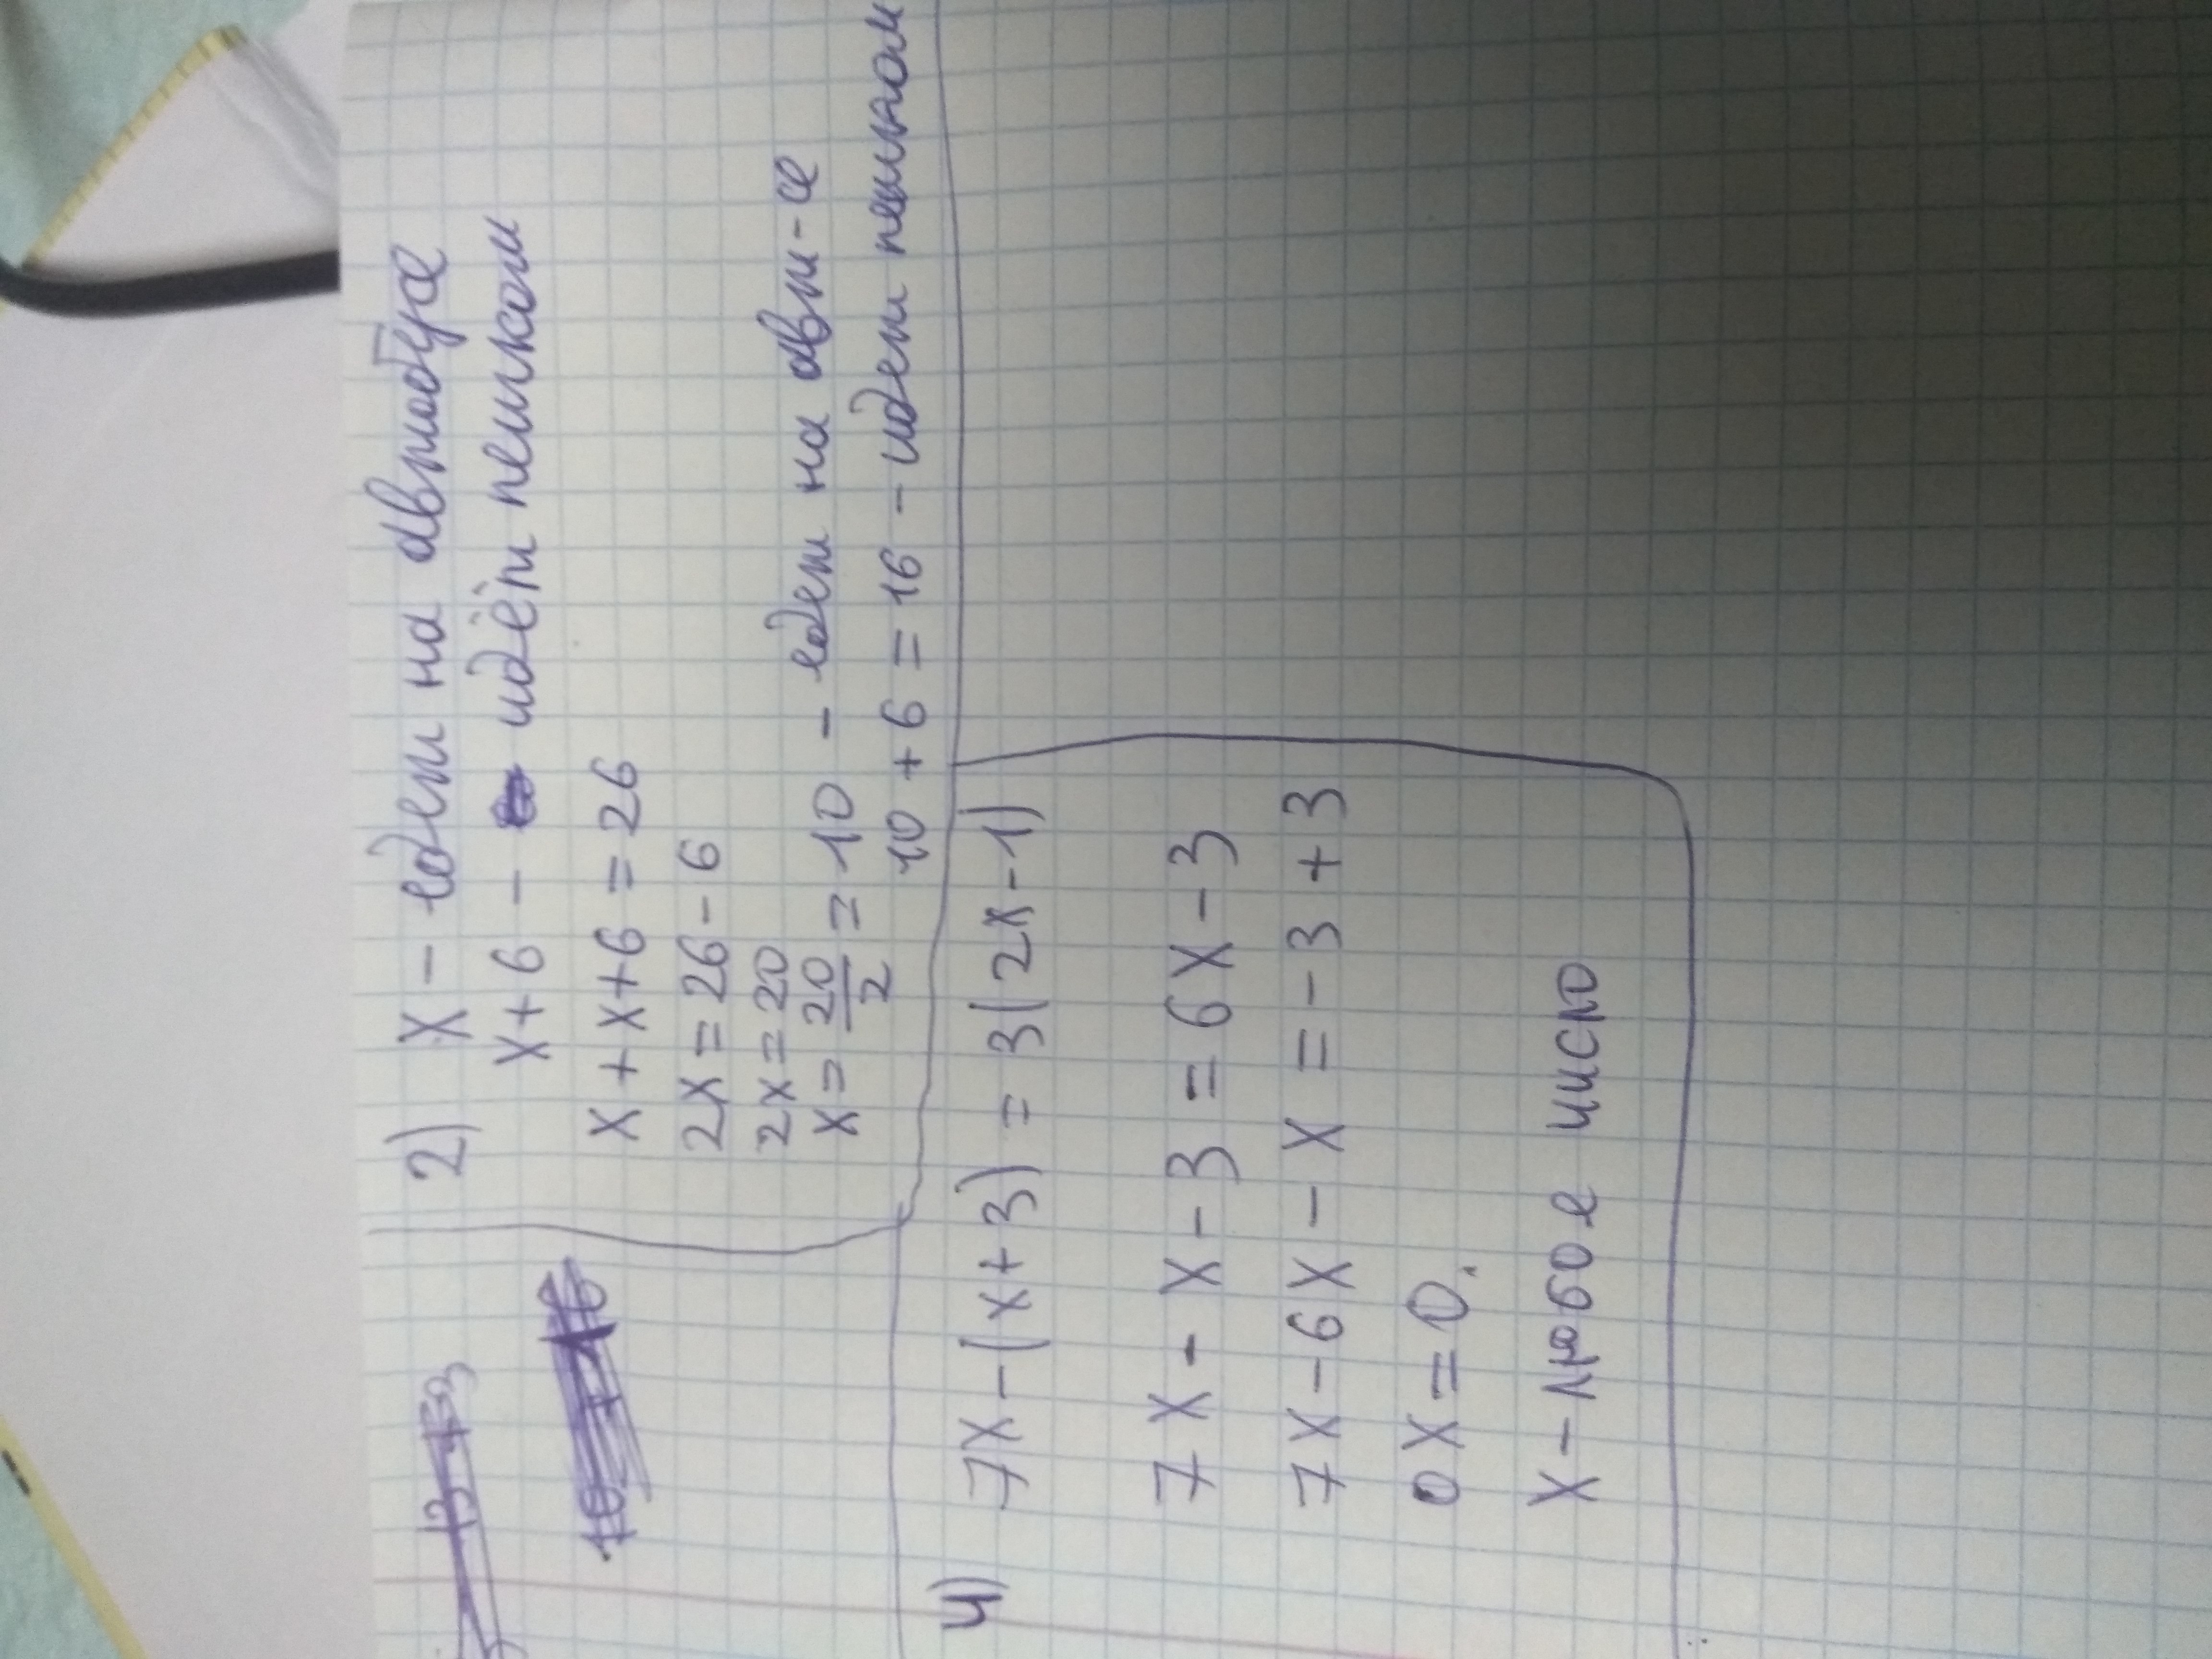 2) X - едет на автобусе
X + 6 - идёт пешком
X + X + 6 = 26
2X = 26 - 6
2X = 20
X = 20/2 = 10 - едет на авт-се
10 + 6 = 16 - идет пешком
4) 7X - (X + 3) = 3(2X - 1)
7X - X - 3 = 6X - 3
7X - 6X - X = -3 + 3
0X = 0.
X - любое число